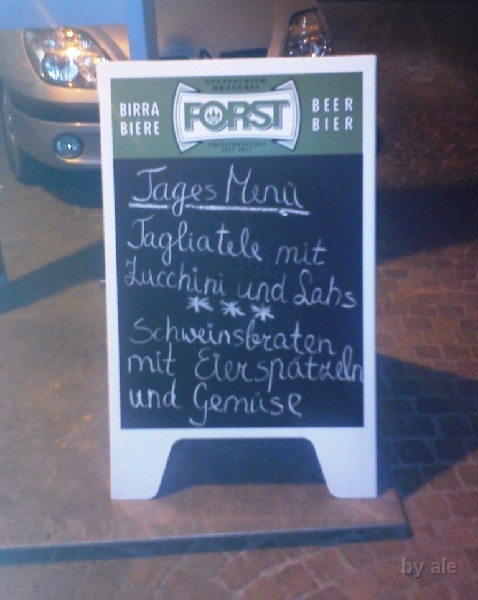 SPEZIALBIER
BRAUEREI
BIRRA FORST BEER
BIERE BIER
Tages Menü
Tagliatele mit
Zucchini und Lahs
***
Schweinsbraten
mit Eierspätzeln
und Gemüse
by ale